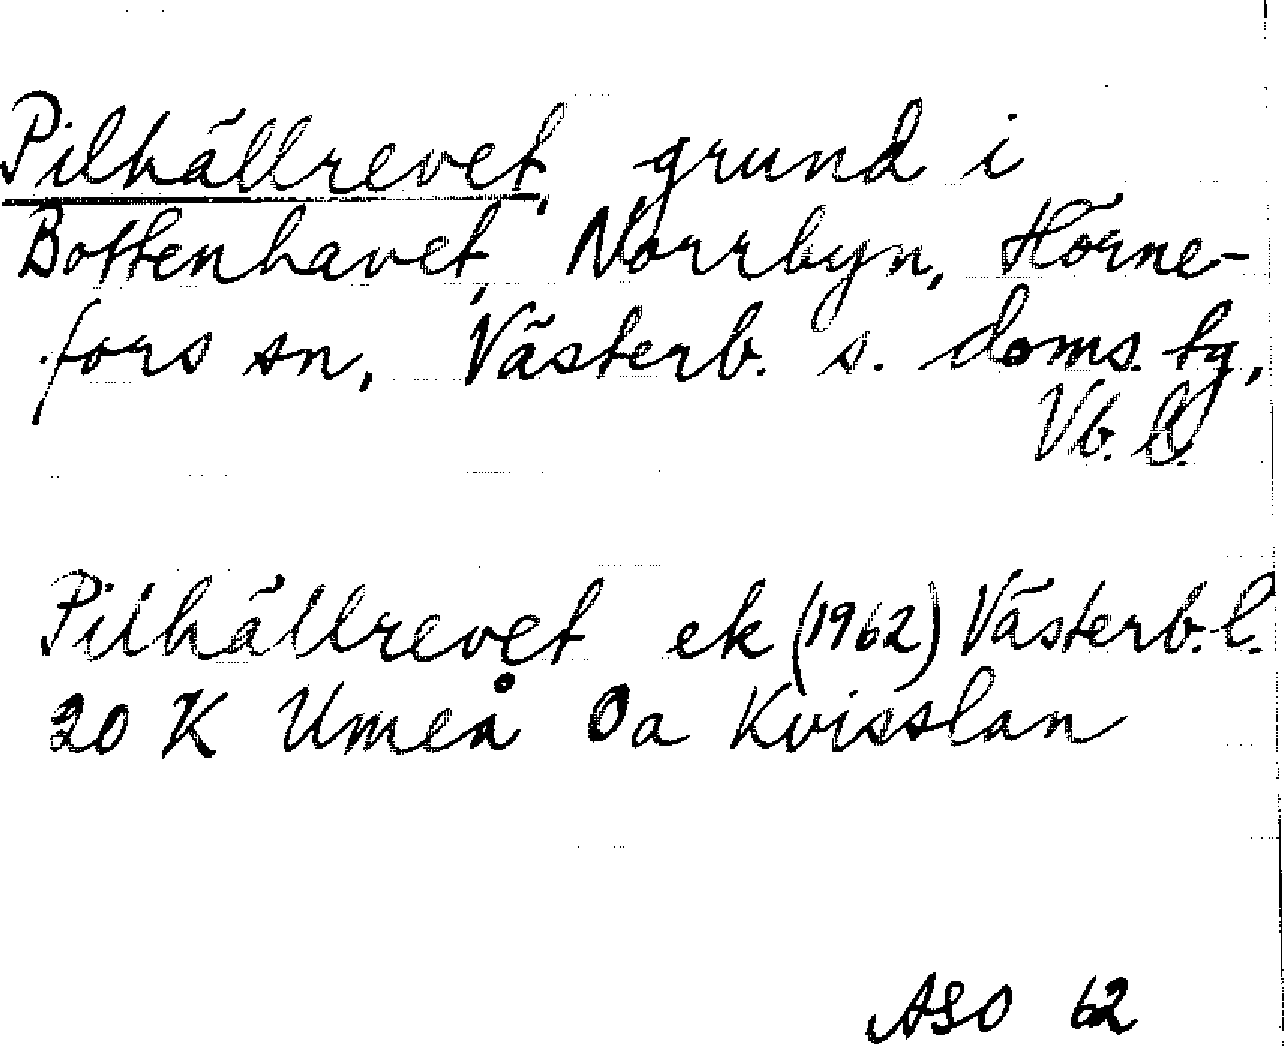 Pilhällrevet, grund i
Bottenhavet, Norrbyn, Hörne-
fors sn, Västerb. s. doms. tg,
Vb. l.
Pilhällrevet ek (1962) Västerb. l.
20 K Umeå 0a Kvisslan
ASO 62